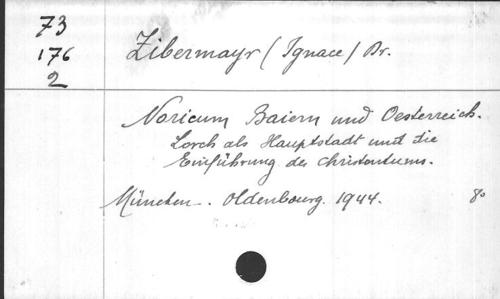 73
176
2
Zibermayr (Ignace) Dr.
Noricum Baiern und Oesterreich.
Lorch als Hauptstadt und die
Einführung des Christentums.
München. Oldenbourg. 1944. 8º